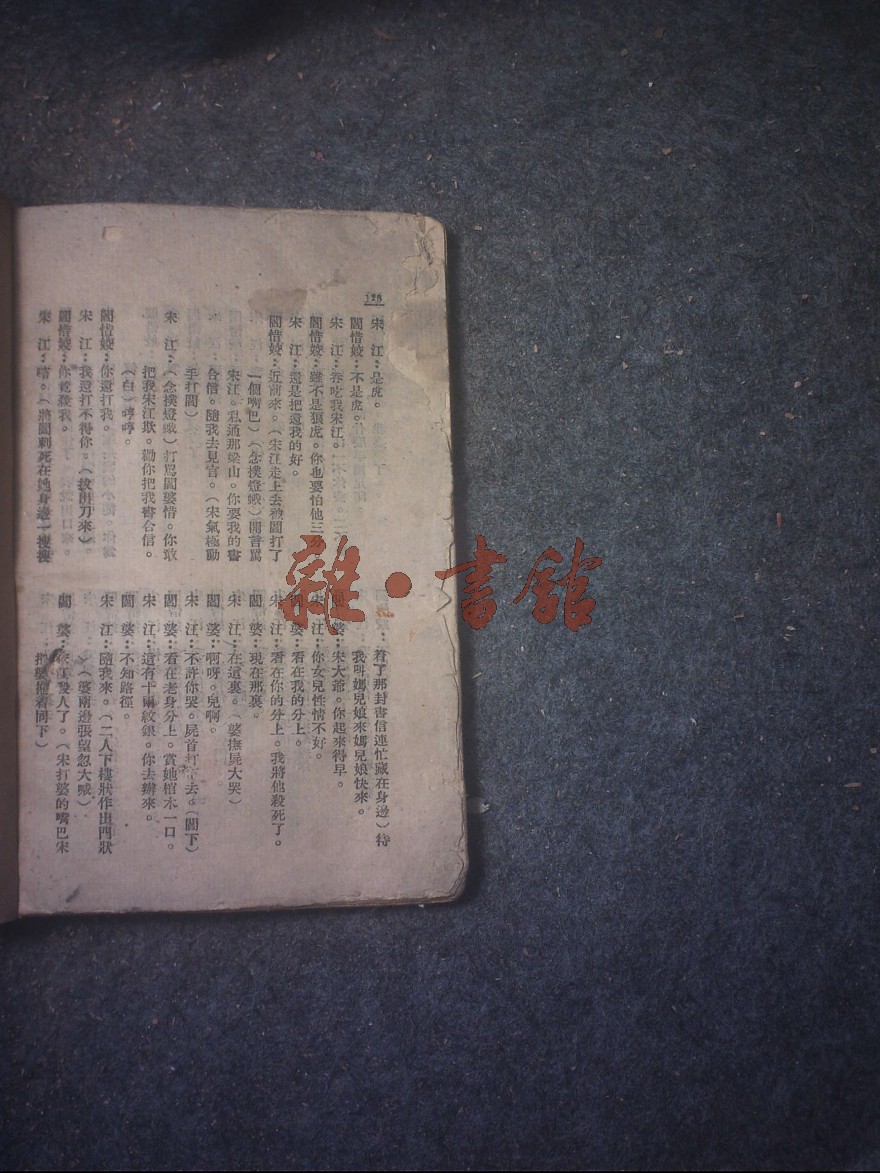 128
宋 江：是虎。
閻惜姣：不是虎。
宋 江：吞吃我宋江。
閻惜姣：雖不是狼虎。你也要怕他三分
宋 江：還是把還我的好。
閻惜姣：近前來。（宋江走上去被閻打了
一個嘴巴）（念撲燈蛾）開言罵
宋江。私通那梁山。你要我的書
合信。隨我去見官。（宋氣極動
手打閻）
宋 江：（念撲燈蛾）打罵閻婆惜。你敢
把我宋江欺。勸你把我書合信。
（白）哼哼。
閻惜姣：你還打我。
宋 江：我還打不得你。（拔出刀來）
閻惜姣：你竟殺我。
宋 江：啃。（將閻刺死在她身邊一搜搜
着了那封書信連忙藏在身邊）待
我叫媽兒娘來媽兒娘快來。
閻 婆：宋大爺。你起來得早。
宋 江：你女兒性情不好。
閻 婆：看在我的分上。
宋 江：看在你的分上。我將他殺死了。
閻 婆：現在那裏。
宋 江：在這裏。（婆撫屍大哭）
閻 婆：啊呀。兒啊。
宋 江：不許你哭。屍首打下去。（閻下）
閻 婆：看在老身分上。賞她棺木一口。
宋 江：這有十兩紋銀。你去辦來。
閻 婆：不知路徑。
宋 江：隨我來。（二人下樓狀作出門狀
）（婆兩邊張望忽大喊）
閻 婆：宋江殺人了。（宋打婆的嘴巴宋
把婆拖着同下）
雜·書館